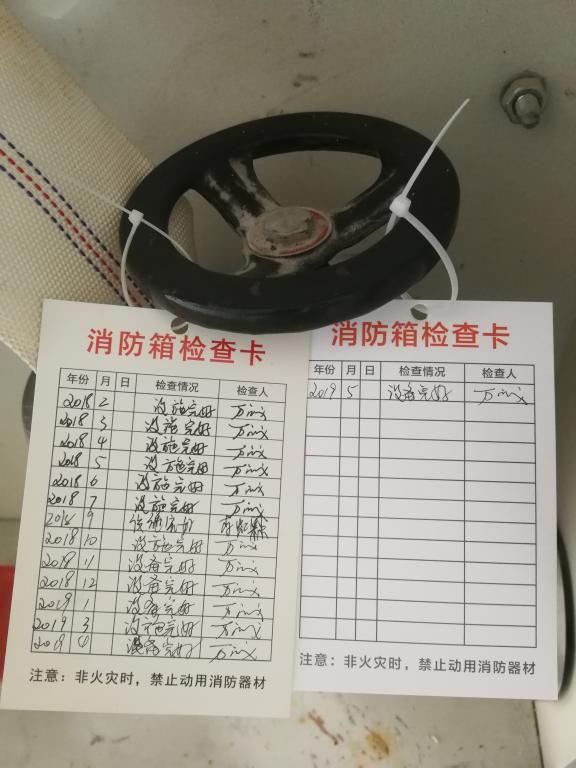 消防箱检查卡
年份 月 日 检查情况 检查人
2018 2 设施完好
2018 3 设施完好
2018 4 设施完好
2018 5 设施完好
2018 6 设施完好
2018 7 设施完好
2018 9
2018 10 设施完好
2018 11 设备完好
2018 12 设备完好
2019 1 设备完好
2019 3 设施完好
2019 4 设备完好
注意：非火灾时，禁止动用消防器材
消防箱检查卡
年份 月 日 检查情况 检查人
2019 5 设备完好
注意：非火灾时，禁止动用消防器材